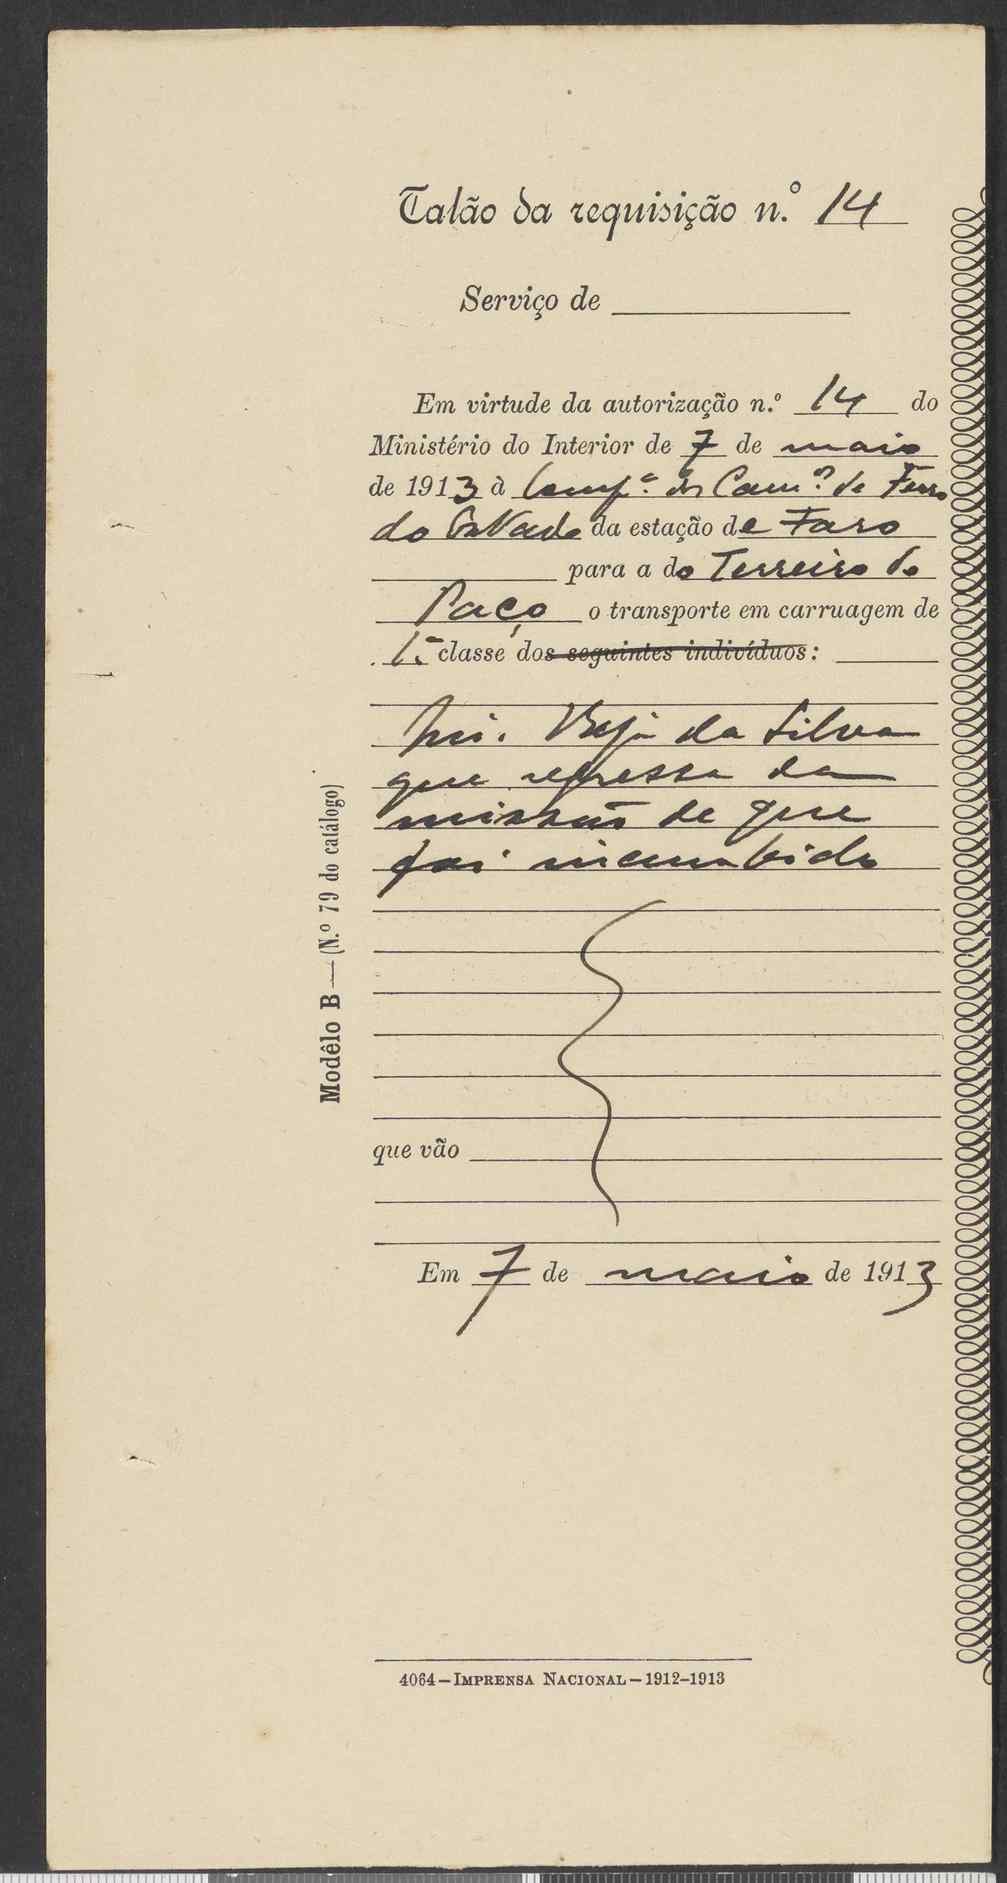 Talão da requisição n.º 14
Serviço de
Em virtude da autorização n.º 14 do
Ministério do Interior de 7 de maio
de 1913 à Comp.ª dos Cam.ºs de Ferro
do Estado da estação de Faro
para a do Terreiro do
Paço o transporte em carruagem de
1.ª classe dos seguintes indivíduos:
da Silva
que regressa da
missão de que
foi incumbido
que vão
Em 7 de maio de 1913
Modêlo B — (N.º 79 do catálogo)
4064 — Imprensa Nacional — 1912-1913